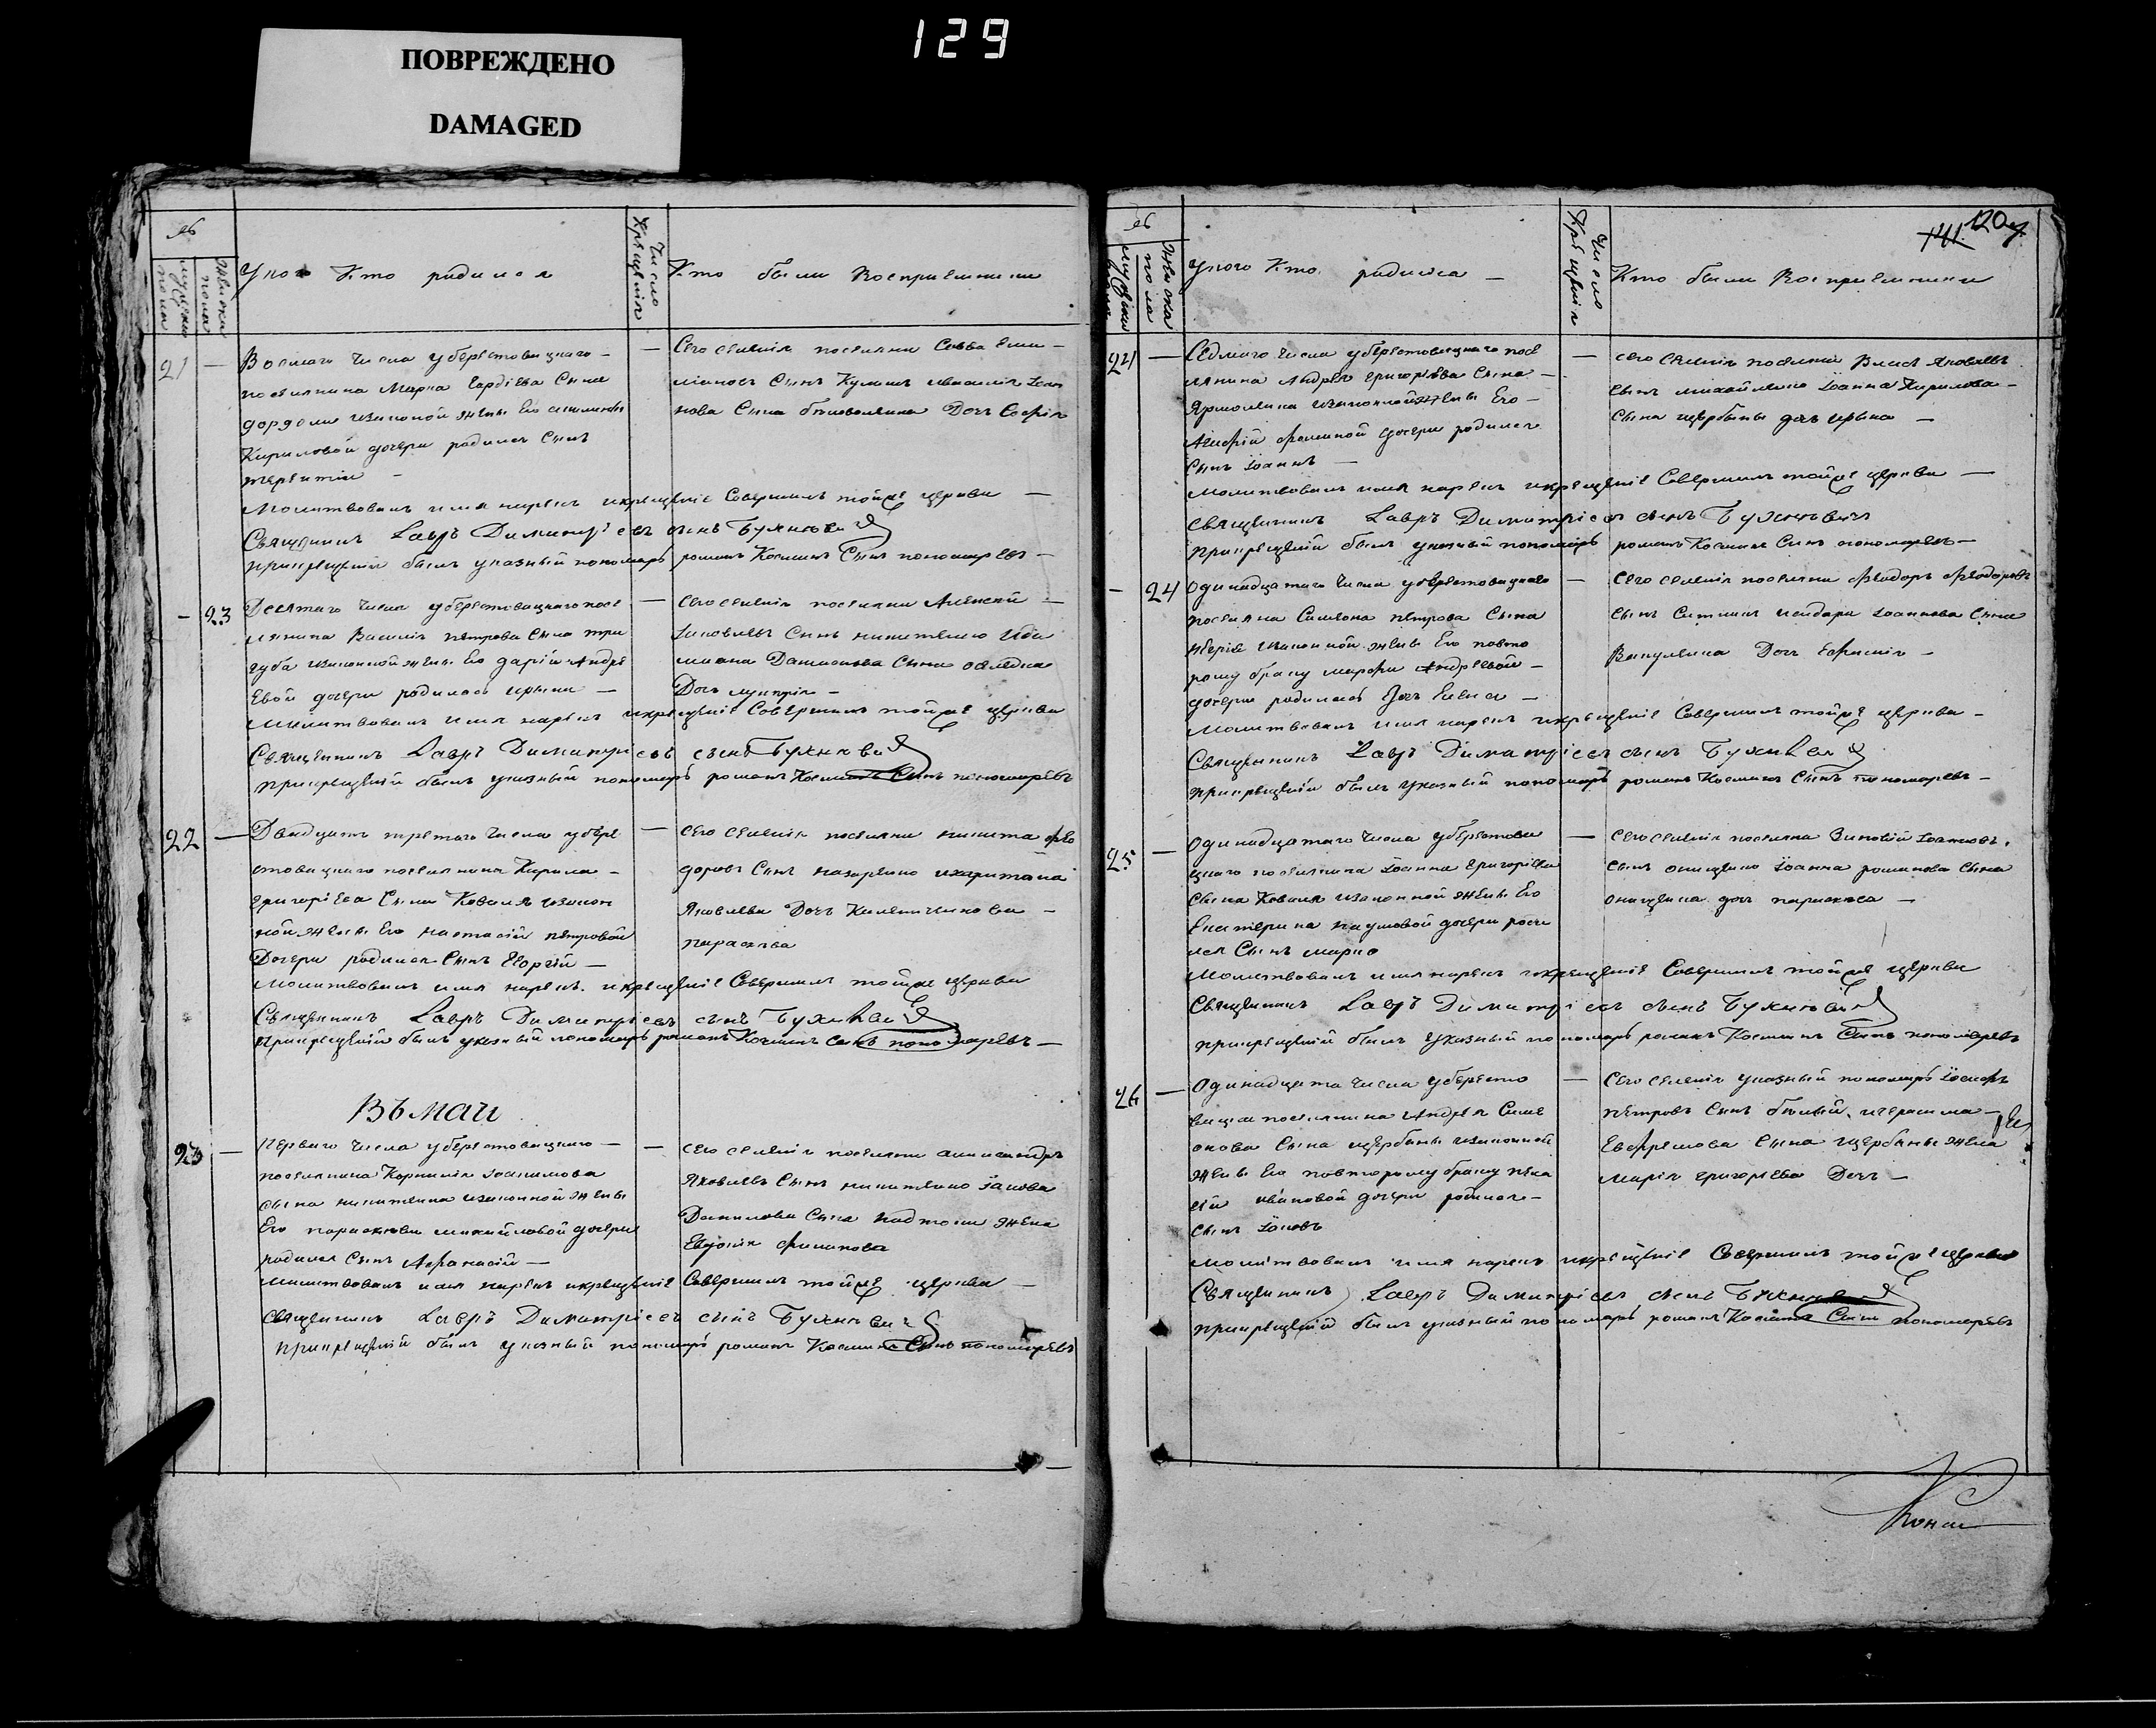 129
ПОВРЕЖДЕНО
DAMAGED
№
мужска пола
женска пола
У кого Кто родился
Число Крещенія
Кто были Восприемники
21 — Восмаго Числа уберестовецкаго —
поселянина Марка Сына
законной жены Его
Кириловой дочери родился Сынъ
терентій —
— Сего селенія поселянинъ Савва Еми —
ліановъ Сынъ
нова Сына Дочь Софія
Молитвовалъ имя нарекъ икрещеніе Совершилъ тойже церкви —
Священникъ Лавръ Димитріевъ сынъ Бухновичъ
прикрещеніи былъ указный пономарь романъ Косминъ Сынъ пономаревъ —
— 23 Десятаго Числа уберестовецкаго посе
лянина Василія петрова Сына три
губа иззаконной жены Его даріи Андре
евой дочери родилась ирина —
— Сего селенія поселянинъ Алексей —
Яковлевъ Сынъ никитенко
Сына
Дочь
Молитвовалъ имя нарекъ икрещеніе Совершилъ тойже церкви
Священникъ Лавръ Димитріевъ сынъ Бухновичъ
прикрещеніи былъ указный пономарь романъ Косминъ Сынъ пономаревъ
22 — Двадцать третяго Числа убере
стовецкаго поселянина Кирила —
григоріева Сына Коваля иззакон
ной жены Его настасіи петровой
Дочери родился Сынъ Георгій —
— Сего селенія поселянинъ никита фео
доровъ Сынъ назаренко ихаритона
Яковлева Дочь
параскева
Молитвовалъ имя нарекъ икрещеніе Совершилъ тойже церкви
Священникъ Лавръ Димитріевъ сынъ Бухновичъ
прикрещеніи былъ указный пономарь романъ Косминъ Сынъ пономаревъ —
Въ маи
23 — Перваго Числа уберестовецкаго —
поселянина Корнилія
сына никитенка иззаконной жены
Его параскевы михайловой дочери
родился Сынъ Афанасій —
— Сего селенія поселянинъ александръ
Яковлевъ Сынъ никитенко Іакова
Данилова Сына жена
Евдокія филипова
Молитвовалъ имя нарекъ икрещеніе Совершилъ тойже церкви —
Священникъ Лавръ Димитріевъ сынъ Бухновичъ
прикрещеніи былъ указный пономарь романъ Косминъ Сынъ пономаревъ
120
141
№
мужска
женска пола
У кого Кто родился —
Число Крещенія
Кто были Восприемники
24 — Седмаго Числа уберестовецкаго посе
лянина Андрея григоріева Сына —
Ярмоленка иззаконной жены Его —
Агафіи дочери родился
Сынъ Іоаннъ —
— сего селенія поселянинъ Власъ Яковлевъ
сынъ Іоанна Кирилова —
Сына щербины дочь ирина —
Молитвовалъ имя нарекъ икрещеніе Совершилъ тойже церкви —
Священникъ Лавръ Димитріевъ сынъ Бухновичъ
прикрещеніи былъ указный пономарь романъ Косминъ Сынъ пономаревъ —
— 24 Одинадцатаго Числа уберестовецкаго
поселяна Симеона петрова Сына
законной жены Его повто
рому браку марфы Андреевой —
дочери родилась Дочь Елена —
— Сего селенія поселянинъ Феодоръ Феодоровъ
сынъ Ситникъ исидора Іоаннова Сына
Вакуленка Дочь Ефимія —
Молитвовалъ имя нарекъ икрещеніе Совершилъ тойже церкви —
Священникъ Лавръ Димитріевъ сынъ Бухновичъ
прикрещеніи былъ указный пономарь романъ Косминъ Сынъ пономаревъ —
25 — Одинадцатаго Числа уберестове
цкаго поселянина Іоанна григоріева
Сына Коваля иззаконной жены Его
Екатерина наумовой дочери роди
лся Сынъ марко
— Сего селенія поселяна Зиновій Іоанновъ
сынъ онищенко Іоанна романова Сына
онищенка дочь параскева —
Молитвовалъ имя нарекъ икрещеніе Совершилъ тойже церкви
Священникъ Лавръ Димитріевъ сынъ Бухновичъ
прикрещеніи былъ указный пономарь романъ Косминъ Сынъ пономаревъ
26 — Одинадцата Числа убересто
вица поселянина Андрея Симе
онова Сына щербины иззаконной
жены Его повторому браку
ивановой дочери родился —
Сынъ Іаковъ
— Сего селенія указный пономарь Іосифъ
петровъ Сынъ игерасима —
Евфремова Сына щербины жена
марія григоріева Дочь —
Молитвовалъ имя нарекъ икрещеніе Совершилъ тойже церкви
Священникъ Лавръ Димитріевъ сынъ Бухновичъ
прикрещеніи былъ указный пономарь романъ Косминъ Сынъ пономаревъ